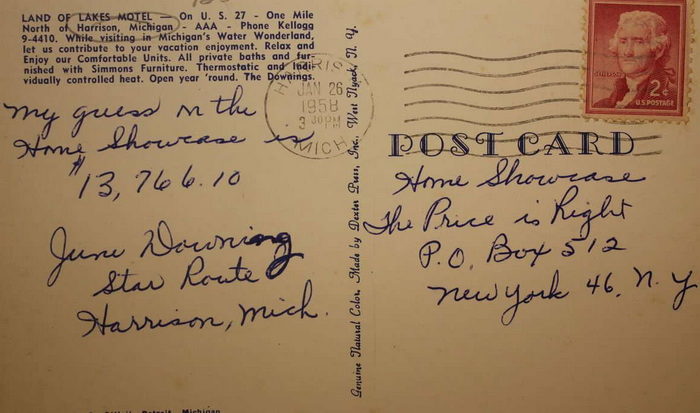 LAND OF LAKES MOTEL — On U. S. 27 - One Mile
North of Harrison, Michigan - AAA - Phone Kellogg
9-4410. While visiting in Michigan's Water Wonderland,
let us contribute to your vacation enjoyment. Relax and
Enjoy our Comfortable Units. All private baths and fur-
nished with Simmons Furniture. Thermostatic and Indi-
vidually controlled heat. Open year 'round. The Downings.
My guess on the
Home Showcase is
$13,766.10
June Downing
Star Route
Harrison, Mich.
Genuine Natural Color. Made by Dexter Press, Inc. West Nyack, N. Y.
HARRISON
JAN 26
1958
3 30 PM
MICH.
2¢
U.S. POSTAGE
POST CARD
Home Showcase
The Price is Right
P.O. Box 512
New York 46, N.Y
Detroit, Michigan